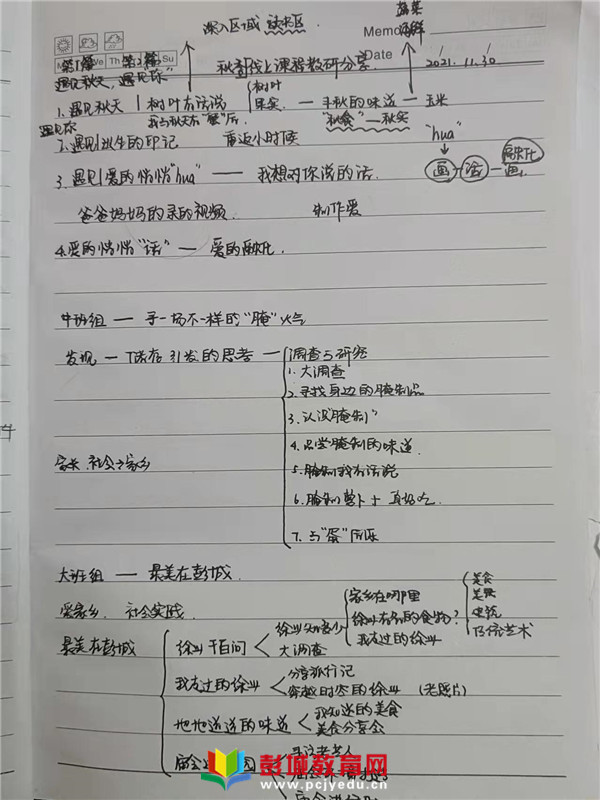 深入区域
蔬菜
海鲜
Memo
Date
We Th Su
第1篇 第2篇
遇见秋天, 遇见你"
秋季线上课程教研分享.
2021.11.30
1.遇见秋天 树叶有话说 树叶
果实 — 丰秋的味道 — 玉米
我与秋天有"蟹"后. "秋食" — 秋实
遇见你
2.遇见出生的印记 重返小时候
"hua"
3.遇见爱的悄悄"hua" — 我想对你说的话. 画 — 话 — 画
爸爸妈妈的录的视频. 制作爱
4.爱的悄悄"话" — 爱的
中班组 — 寻一场不一样的"腌"火气
发现 — 引发的思考 — 调查与研究
1.大调查
2.寻找身边的腌制品
3.认识"腌制"
4.品尝腌制的味道.
家长 社会 家乡 5.腌制我有话说
6.腌制萝卜干 真好吃.
7.与"蛋"同乐
大班组 — 最美在彭城.
爱家乡. 社会实践.
家乡在哪里
徐州有名的食物?
我去过的徐州
美食
美景
建筑
艺术
最美在彭城 徐州千百问 徐州知多少
大调查
我去过的徐州 分享旅行记
穿越时空的徐州 (老照片)
地地道道的味道 我知道的美食
美食分享会
彭城教育网
www.pcjyedu.com